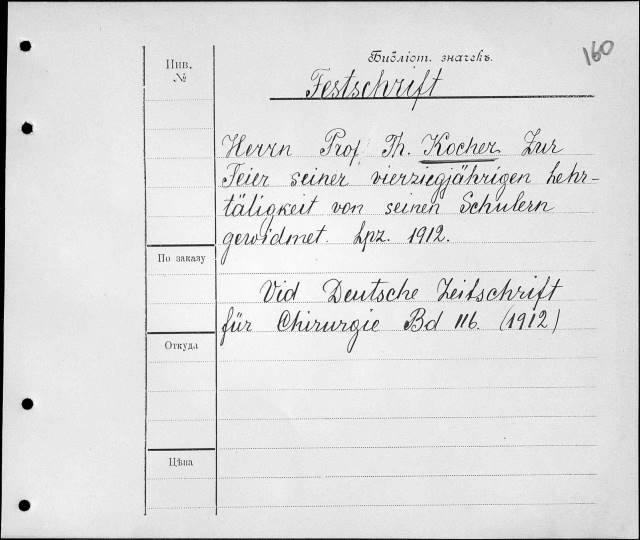 160
Библіот. значекъ.
Инв.
№
Festschrift
Herrn Prof. Th. Kocher Zur
Feier seiner vierziegjährigen Lehr-
täligkeit von seinen Schulern
gewidmet. Lpz. 1912.
По заказу
Vid Deutsche Zeitschrift
für Chirurgie Bd 116. (1912)
Откуда
Цѣна